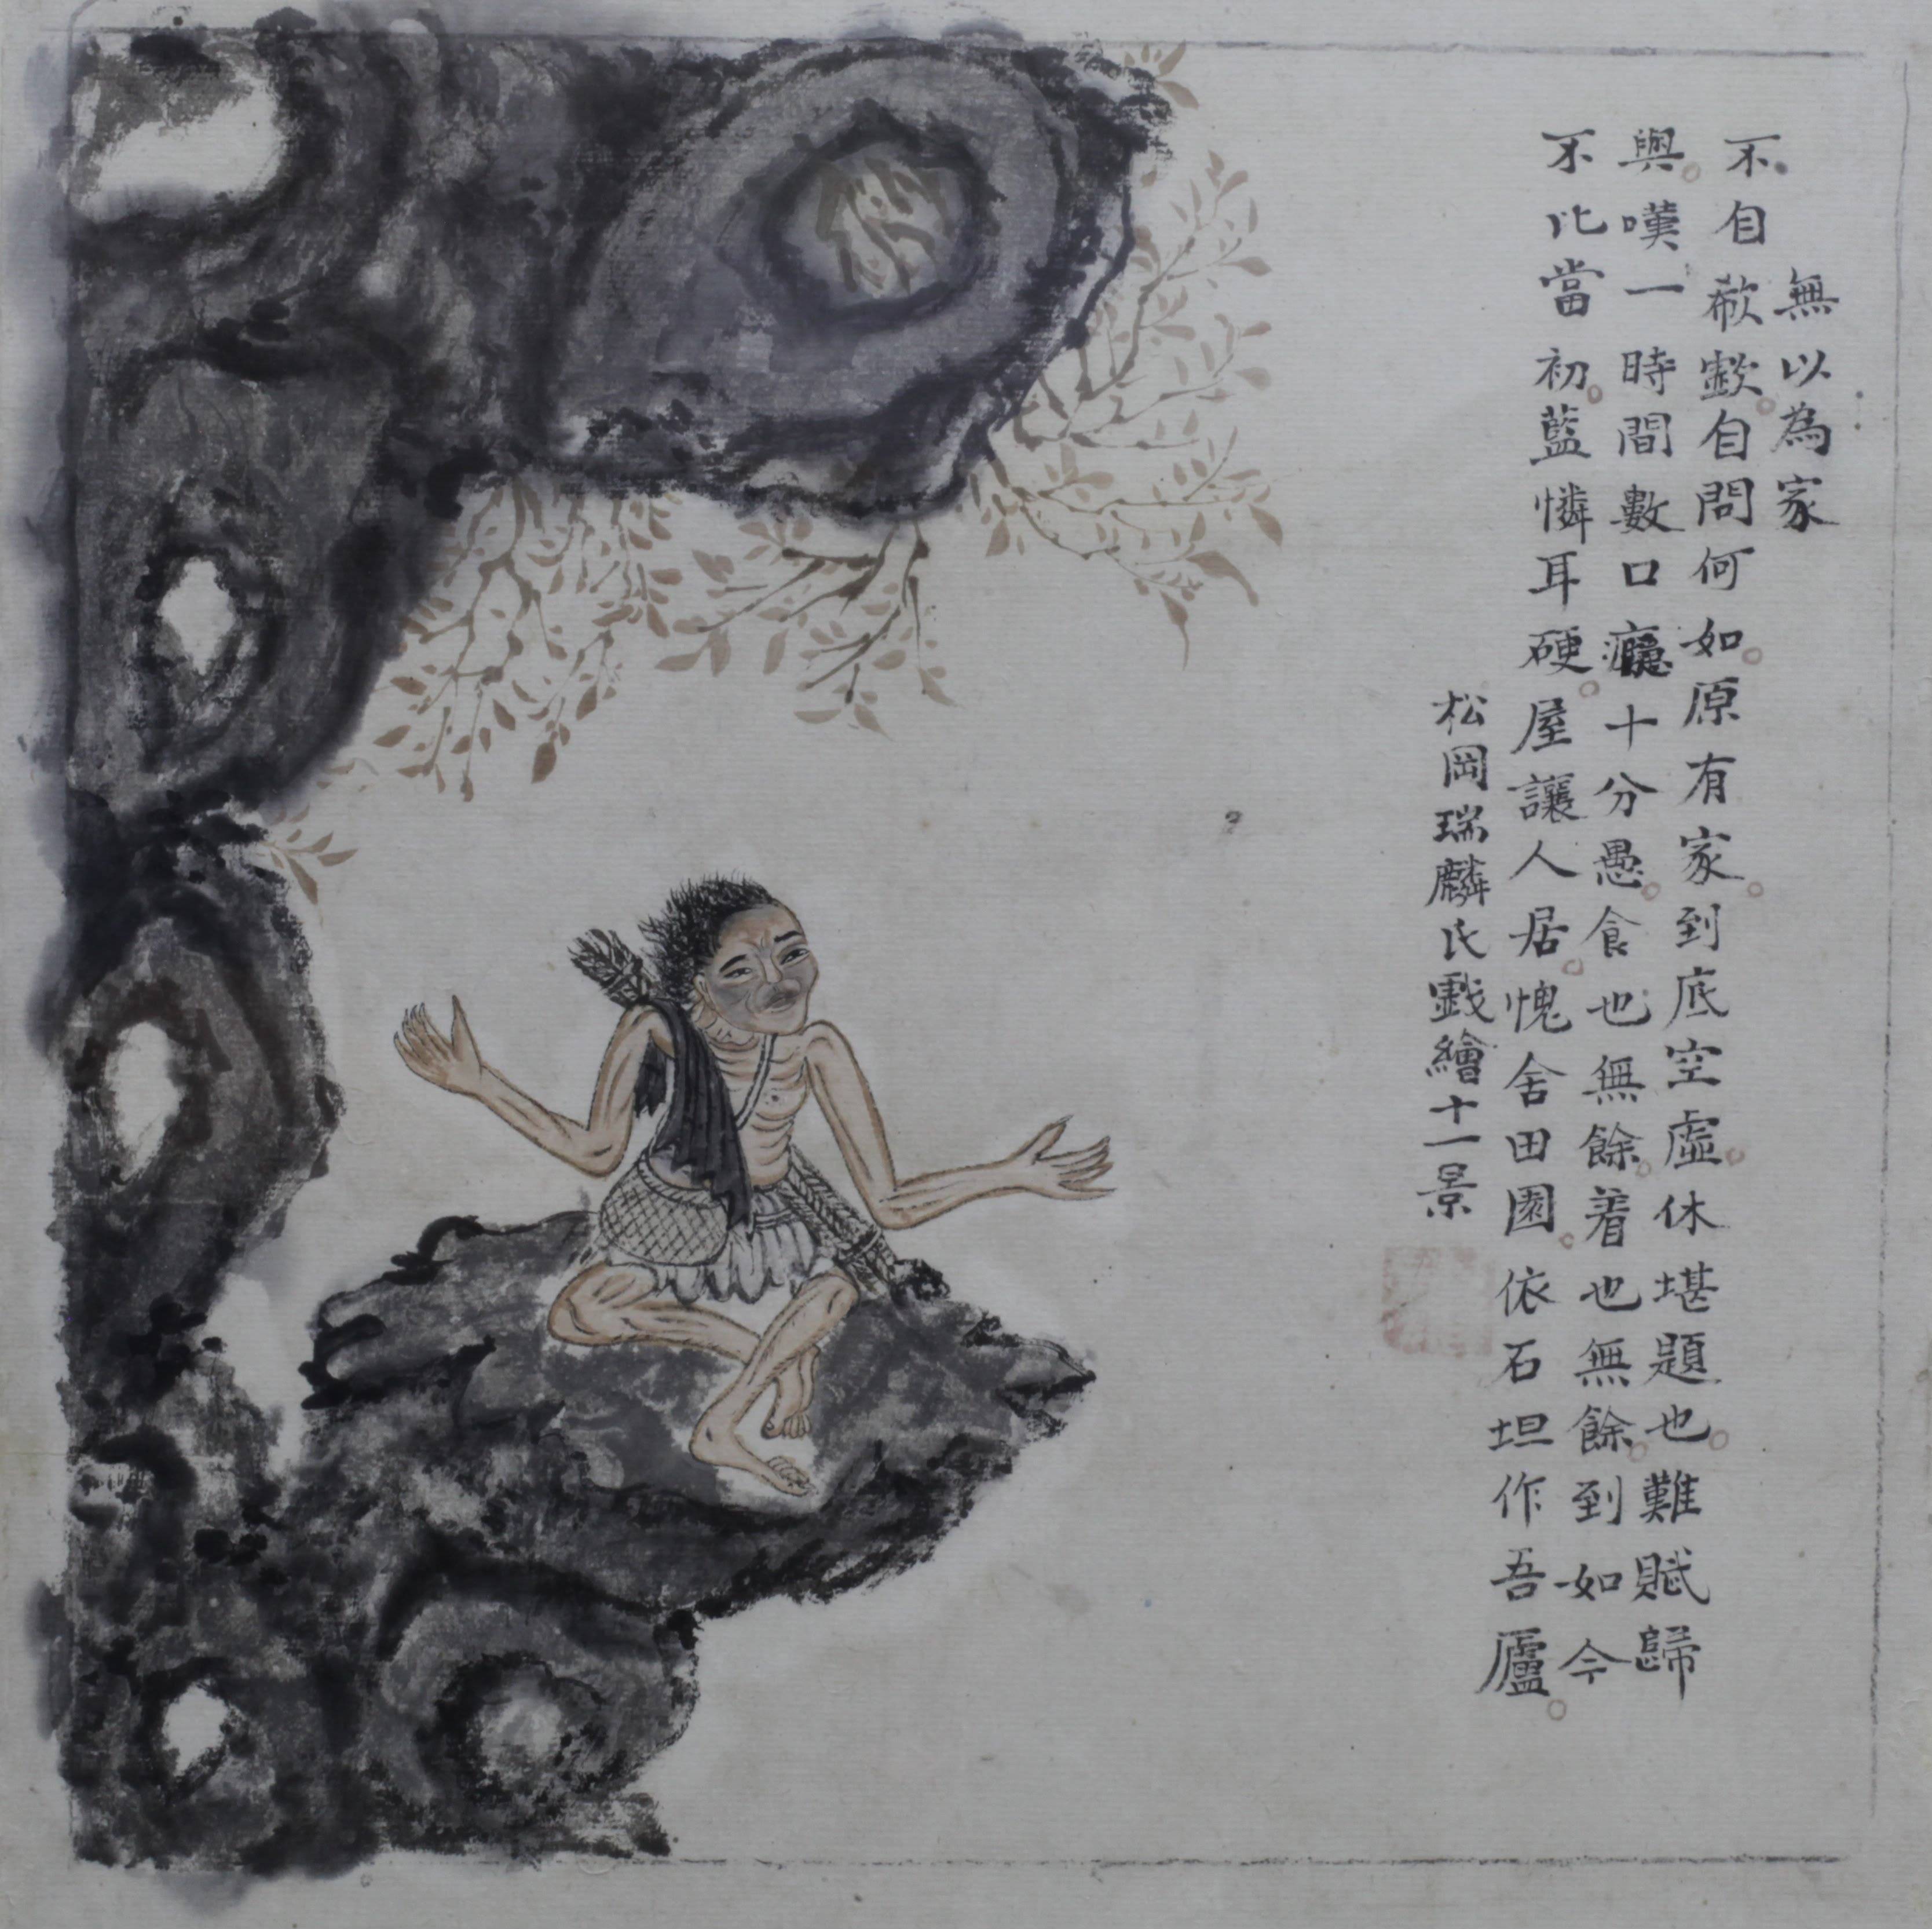 無以為家
不自欷歔自問何如原有家到底空虛休堪題也難賦歸
與嘆一時間數口癮十分愚食也無餘着也無餘到如今
不比當初藍憐耳硬屋讓人居愧舍田園依石坦作吾廬
松岡瑞麟氏戲繪十一景